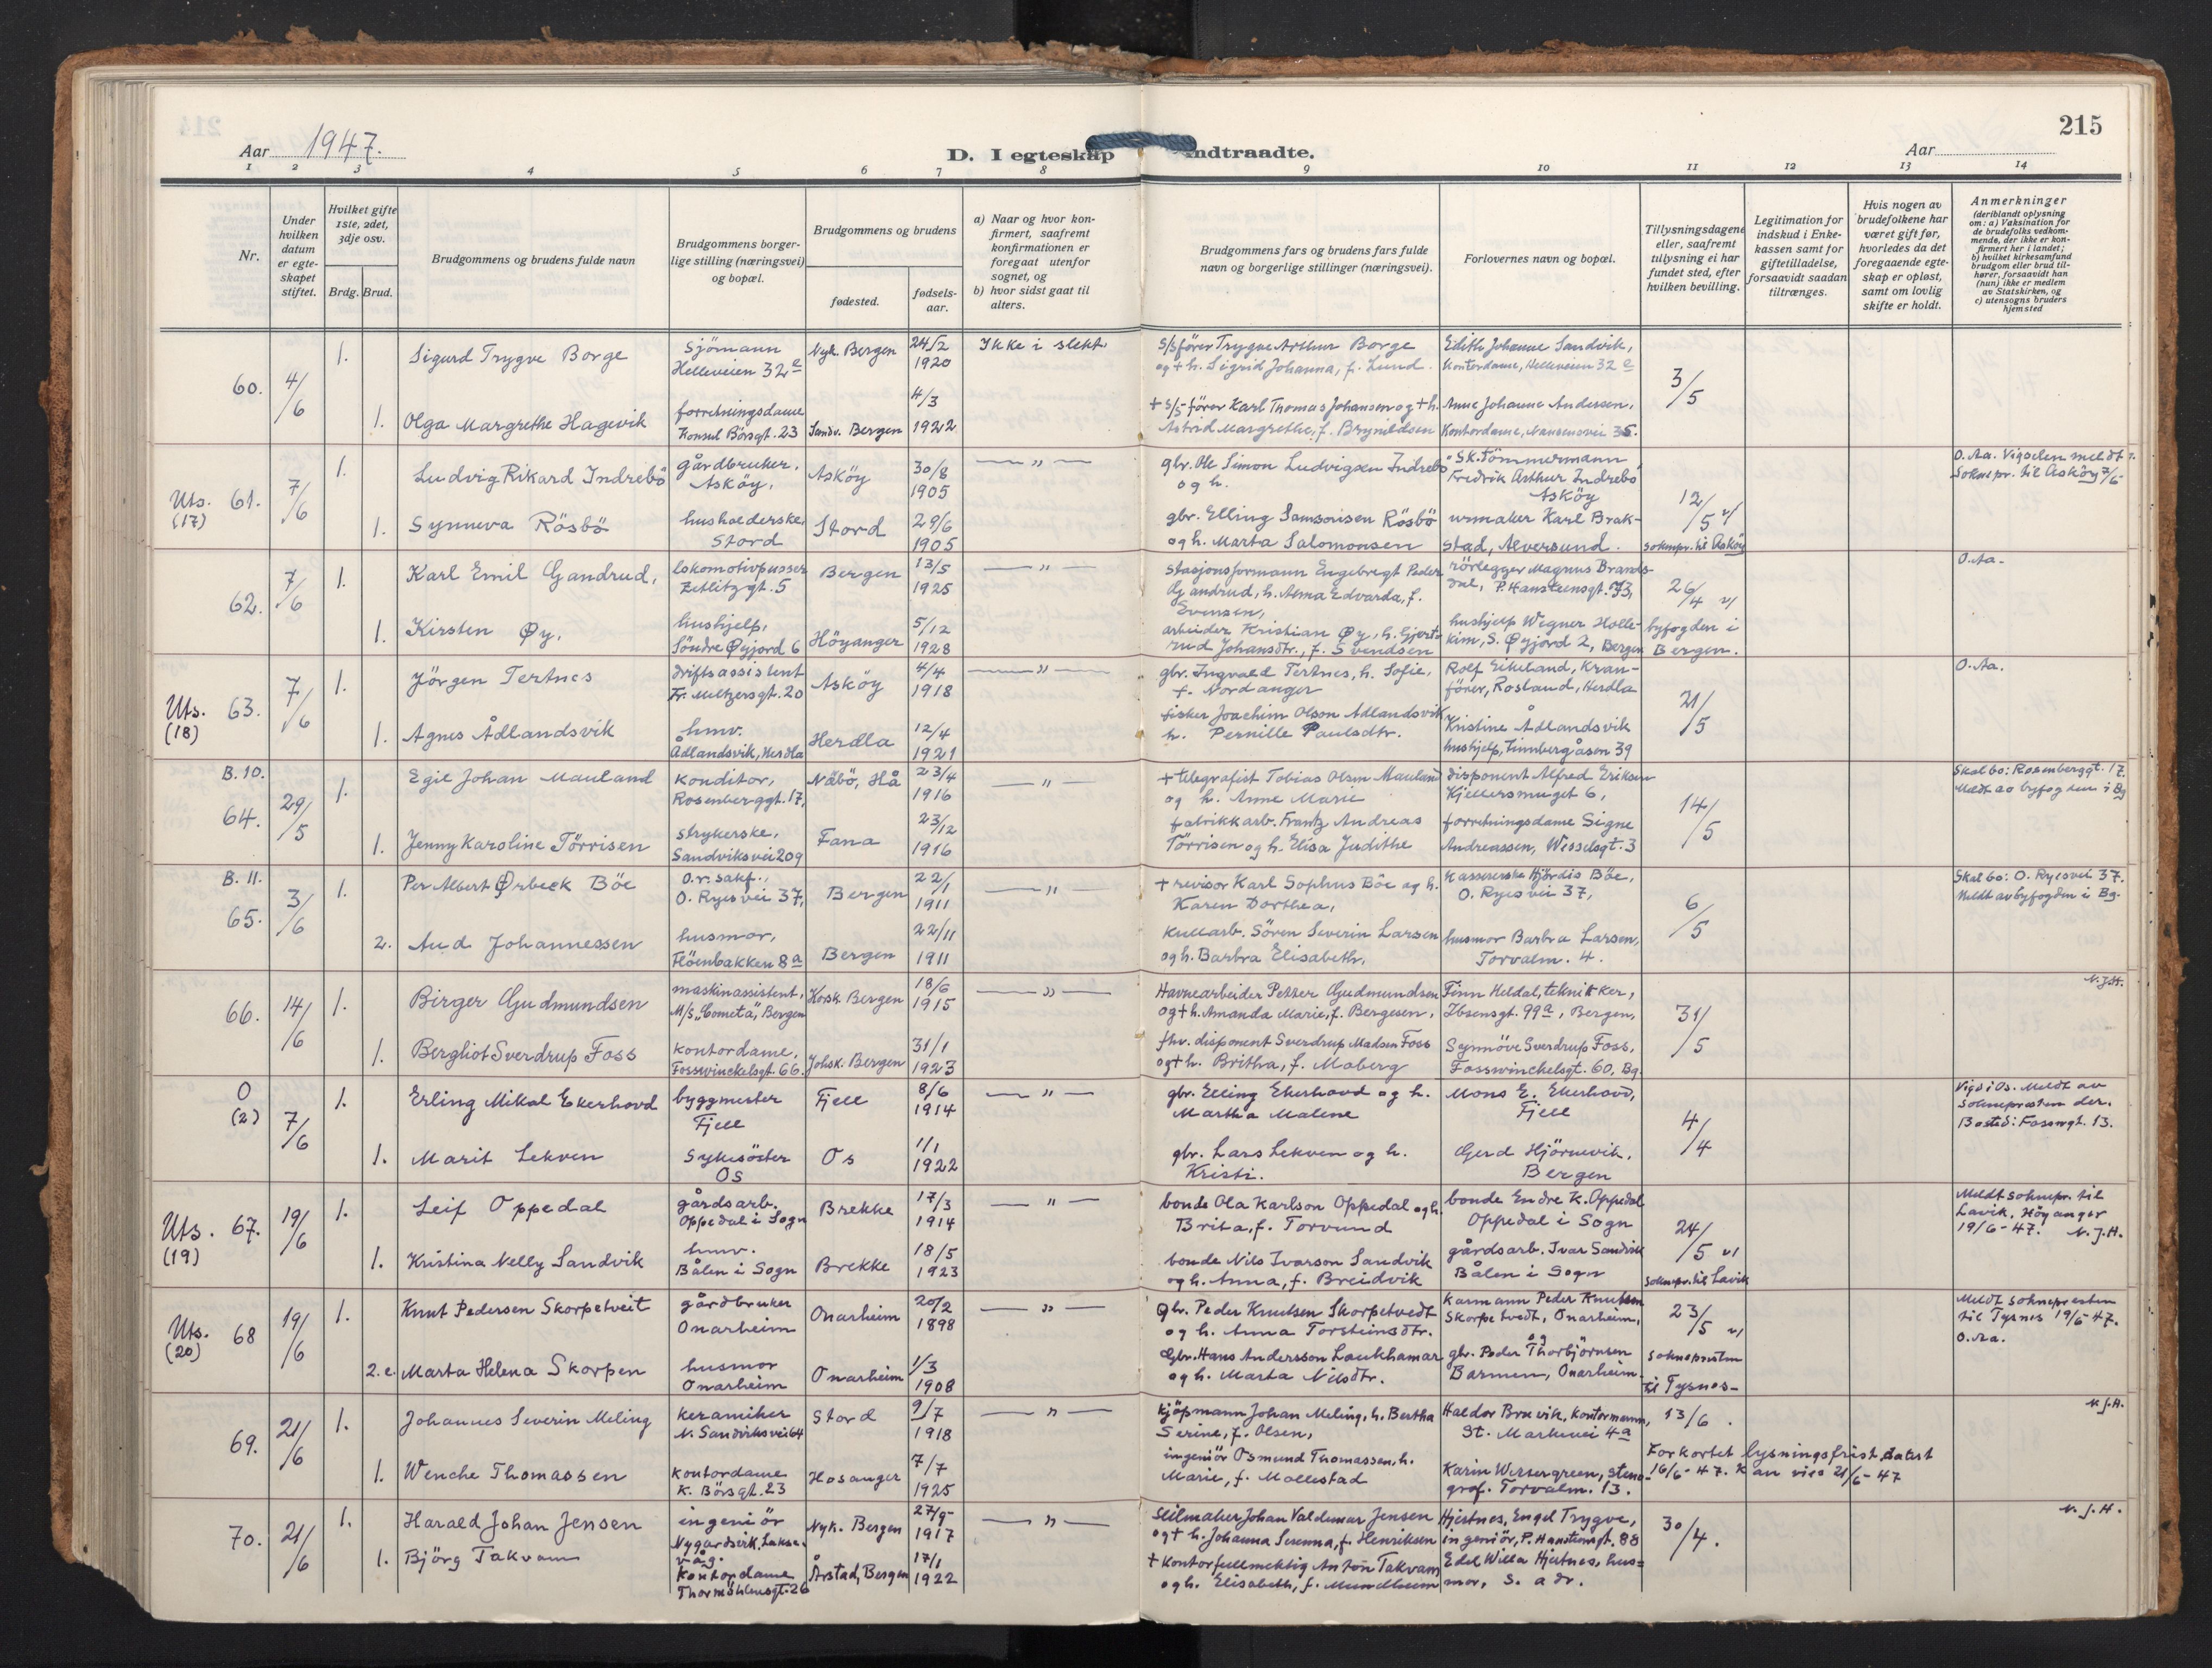 215
Aar 1947.
D. I egteskap indtraadte.
Aar
1 2 3 4 5 6 7 8 9 10 11 12 13 14
Nr.
Under hvilken datum er egteskapet stiftet.
Hvilket gifte 1ste, 2det, 3dje osv.
Brdg. Brud.
Brudgommens og brudens fulde navn
Brudgommens borgerlige stilling (næringsvei) og bopæl.
Brudgommens og brudens
fødested.
fødselsaar.
a) Naar og hvor konfirmert, saafremt konfirmationen er foregaat utenfor sognet, og
b) hvor sidst gaat til alters.
Brudgommens fars og brudens fars fulde navn og borgerlige stillinger (næringsvei).
Forlovernes navn og bopæl.
Tillysningsdagene eller, saafremt tillysning ei har fundet sted, efter hvilken bevilling.
Legitimation for indskud i Enkekassen samt for giftetilladelse, forsaavidt saadan tiltrænges.
Hvis nogen av brudefolkene har været gift før, hvorledes da det foregaaende egteskap er opløst, samt om lovlig skifte er holdt.
Anmerkninger (deriblandt oplysning om: a) Vaksination for de brudefolks vedkommende, der ikke er konfirmert her i landet; b) hvilket kirkesamfund brudgom eller brud tilhører, forsaavidt han (hun) ikke er medlem av Statskirken, og c) utensogns bruders hjemsted
60. 4/6 1. Sigurd Trygve Borge sjömann Helleveien 32e Nyk. Bergen 24/2 1920 Ikke i slekt.
S/S fører Trygve Arthur Borge og + h. Sigrid Johanna, f. Lund. Edith Johanne Sandvik, Kontordame, Helleveien 32e 3/5
1. Olga Margrethe Hagevik forretningsdame Konsul Börsgt. 23 Sandv. Bergen 4/3 1922
+ S/S-fører Karl Thomas Johansen og + h. Astrid Margrethe, f. Brynildsen Anne Johanne Andersen, Kontordame, Nansensvei 35.
Uts. (17) 61. 7/6 1. Ludvig Rikard Indrebö gårdbruker, Asköy. Asköy 30/8 1905 — " —
gbr. Ole Simon Ludvigsen Indrebö og h. Sk.tömmermann Fredrik Arthur Indrebö Asköy 12/5 soknepr. til Asköy
O. Aa. Vigselen meldt Soknepr. til Asköy 7/6
1. Synneva Rösbö husholderske, Stord Stord 29/6 1905
gbr. Elling Samsonsen Rösbö og h. Marta Salomonsen urmaker Karl Brakstad, Alversund.
62. 7/6 1. Karl Emil Gandrud, lokomotivpusser Zetlitzgt. 5 Bergen 13/5 1925 — " —
stasjonsformann Engebregt Peder Gandrud, h. Alma Edvarda, f. Evensen, rörlegger Magnus Brandsdal, P. Hansteensgt. 73, 26/4 byfogden i Bergen. O. Aa.
1. Kirsten Øy. hushjelp, Söndre Øyjord 6 Höyanger 5/12 1928
arbeider Kristian Øy, h. Gjertrud Johansdtr., f. Svendsen hushjelp Wegner Hollekim, S. Øyjord 2, Bergen
Uts. (18) 63. 7/6 1. Jörgen Tertnes driftsassistent Fr. Meltzersgt. 20 Asköy 4/4 1918 — " —
gbr. Ingvald Tertnes, h. Sofie, f. Nordanger Rolf Eikeland, Kranförer, Rosland, Herdla 21/5 O. Aa.
1. Agnes Ådlandsvik hmv. Ådlandsvik, Herdla Herdla 12/4 1921
fisker Joachim Olson Ådlandsvik h. Pernille Paulsdtr. Kristine Ådlandsvik hushjelp, Finnbergåsen 39
B. 10. 64. 29/5 1. Egil Johan Mauland konditor, Rosenberggt. 17, Näbö, Hå 23/4 1916 — " —
+ telegrafist Tobias Olsen Mauland og h. Anne Marie disponent Alfred Eriksen Kjellersmuget 6, 14/5
Skal bo: Rosenberggt. 17. Meldt av byfogden i Bg
1. Jenny Karoline Törrisen strykerske, Sandviksvei 209 Fana 23/12 1916
fabrikkarb. Frantz Andreas Törrisen og h. Elisa Judithe forretningsdame Signe Andreassen, Wesselsgt. 3
B. 11. 65. 3/6 1. Per Albert Ørbeck Böe O.r. sakf., O. Ryesvei 37, Bergen 22/1 1911 — " —
+ revisor Karl Sophus Böe og h. Karen Dorthea, Kassererske Hjördis Böe, O. Ryesvei 37, 6/5
Skal bo: O. Ryesvei 37. Meldt av byfogden i Bg.
2. Aud Johannessen husmor, Flöenbakken 8a Bergen 22/11 1911
kullarb. Sören Severin Larsen og h. Barbra Elisabeth, husmor Barbra Larsen, Torvalm. 4.
66. 14/6 1. Birger Gudmundsen maskinassistent, M/S „Cometa", Bergen Korsk. Bergen 18/6 1915 — " —
Havnearbeider Petter Gudmundsen og + h. Amanda Marie, f. Bergesen, Finn Heldal, tekniker, Ibsensgt. 99a, Bergen, 31/5 N. J. H.
1. Bergliot Sverdrup Foss kontordame, Fosswinckelsgt. 66. Johsk. Bergen 31/1 1923
fhv. disponent Sverdrup Madsen Foss og + h. Britha, f. Moberg Synnöve Sverdrup Foss, Fosswinckelsgt. 60, Bg.
O (2) 7/6 1. Erling Mikal Ekerhovd byggmester Fjell Fjell 8/6 1914 — " —
gbr. Elling Ekerhovd og h. Martha Malene Mons E. Ekerhovd, Fjell 4/4
Vigd i Os. Meldt av Soknepresten der. Bosted: Fosswgt. 13.
1. Marit Lekven Sykesöster Os Os 1/1 1922
gbr. Lars Lekven og h. Kristi. Gerd Hjörnevik, Bergen
Uts. (19) 67. 19/6 1. Leif Oppedal gårdsarb. Oppedal i Sogn Brekke 17/3 1914 — " —
bonde Ola Karlson Oppedal og h. Brita, f. Torvund bonde Endre K. Oppedal Oppedal i Sogn 24/5 soknepr. til Lavik
Meldt soknepr. til Lavik, Höyanger 19/6-47. N. J. H.
1. Kristina Nelly Sandvik hmv. Bålen i Sogn Brekke 18/5 1923
bonde Nils Ivarson Sandvik og h. Anna, f. Breidvik gårdsarb. Ivar Sandvik Bålen i Sogn
Uts. (20) 68 19/6 1. Knut Pedersen Skorpetveit gårdbruker Onarheim Onarheim 20/2 1898 — " —
Gbr. Peder Knutsen Skorpetvedt og h. Anna Torsteinsdtr. Karmann Peder Knutsen Skorpetvedt, Onarheim, og 23/5 soknepresten til Tysnes
Meldt soknepresten til Tysnes 19/6-47. O. Aa.
2. e. Marta Helena Skorpen husmor Onarheim Onarheim 1/3 1908
Gbr. Hans Andersson Laukhamar og h. Marta Nilsdtr. gbr. Peder Thorbjörnsen Barmen, Onarheim.
69. 21/6 1. Johannes Severin Meling keramiker N. Sandviksvei 64 Stord 9/7 1918 — " —
kjöpmann Johan Meling, h. Bertha Serine, f. Olsen, Haldor Bruvik, kontormann, St. Markevei 4a 13/6. N. J. H.
1. Wenche Thomassen kontordame K. Börsgt. 23 Hosanger 7/7 1925
ingeniör Osmund Thomassen, h. Marie, f. Mollestad Karin Westergreen, stenograf. Torvalm. 13.
Forkortet lysningsfrist datert 16/6-47. Kan vies 21/6-47
70. 21/6 1. Harald Johan Jensen ingeniör Nygardsvik, Laksevåg. Nyk. Bergen 27/9 1917 — " —
seilmaker Johan Valdemar Jensen og + h. Johanna Susanna, f. Henriksen Hjertnes, Engel Trygve, ingeniör, P. Hansteensgt. 88 30/4. N. J. H.
1. Björg Takvam Kontordame Thormöhlensgt. 26 Årstad, Bergen 17/1 1922
+ Kontorfullmektig Anton Takvam og h. Elisabeth, f. Mundheim Edel Willa Hjertnes, husmor, s. adr.